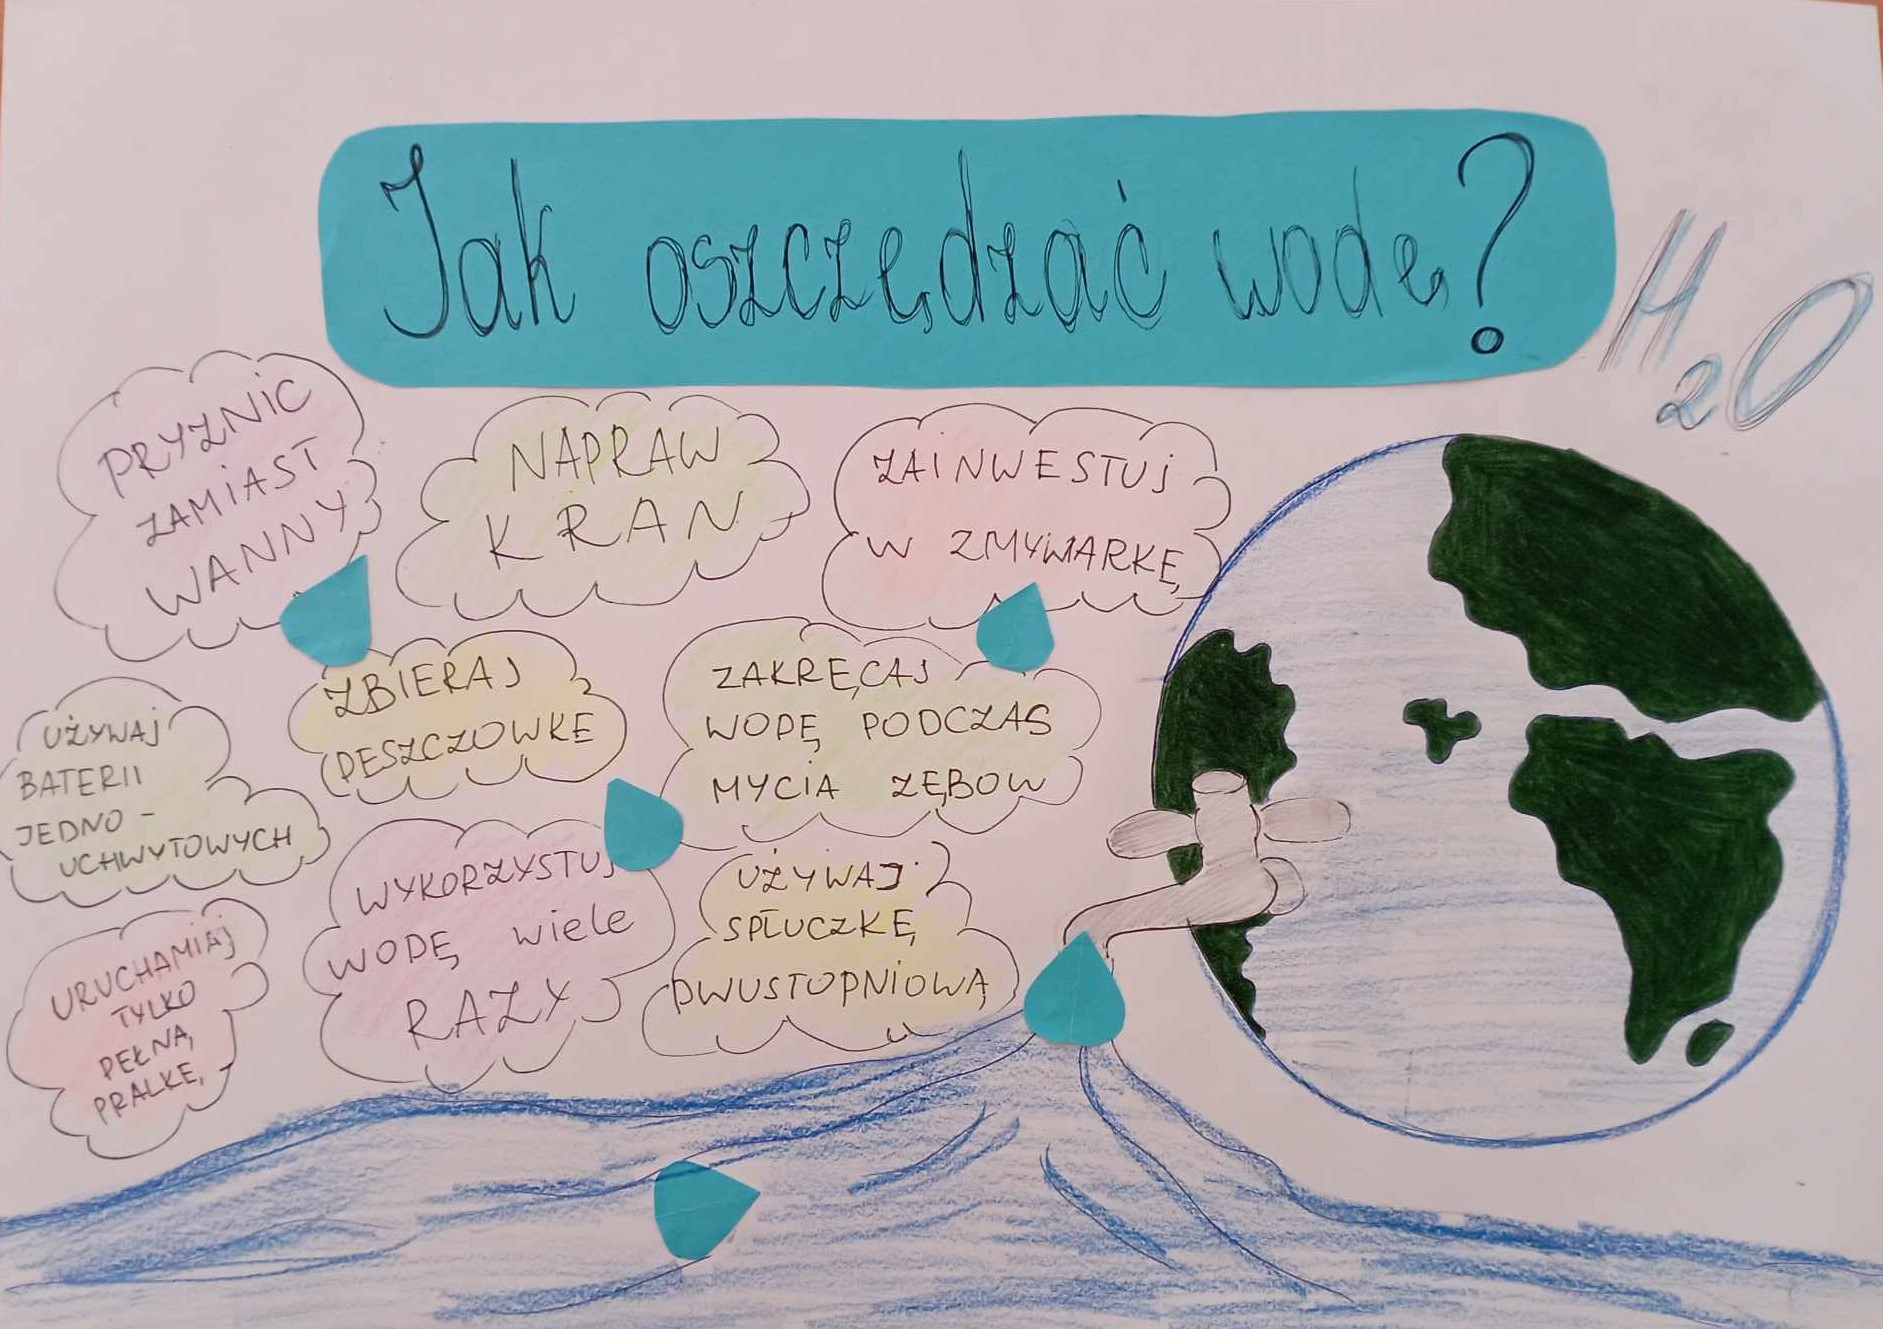 Jak oszczędzać wodę?
H2O
PRYZNIC
ZAMIAST
WANNY
NAPRAW
KRAN
ZAINWESTUJ
W ZMYWARKĘ
UŻYWAJ
BATERII
JEDNO-
UCHWYTOWYCH
ZBIERAJ
DESZCZOWKĘ
ZAKRĘCAJ
WODĘ PODCZAS
MYCIA ZĘBOW
URUCHAMIAJ
TYLKO
PEŁNĄ
PRALKĘ
WYKORZYSTUJ
WODĘ wiele
RAZY
UŻYWAJ
SPŁUCZKĘ
DWUSTOPNIOWĄ